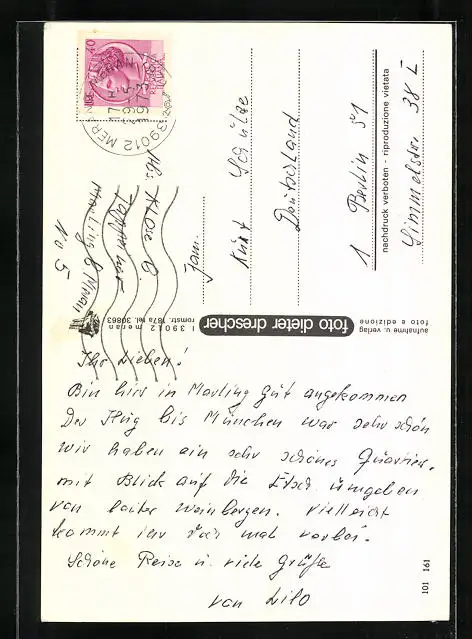 Ihr Lieben!
Bin hier in Marling gut angekommen
Der Flug bis München war sehr schön
wir haben ein sehr schönes Quartier.
mit Blick auf die Etsch umgeben
von lauter weinbergen. vielleicht
kommt ihr doch mal vorbei.
Schöne Reise u. viele Grüße
von Lilo
Fam.
Kurt Schulze
Deutschland
1 Berlin 51
Simmelstr. 38 I
Abs. Klose G
Marling b Meran
No 5
foto dieter drescher
I 39012 meran
romstr. 187a tel. 30863
aufnahme u. verlag
foto e edizione
nachdruck verboten - riproduzione vietata
101 161
39012 MERAN
1973
40